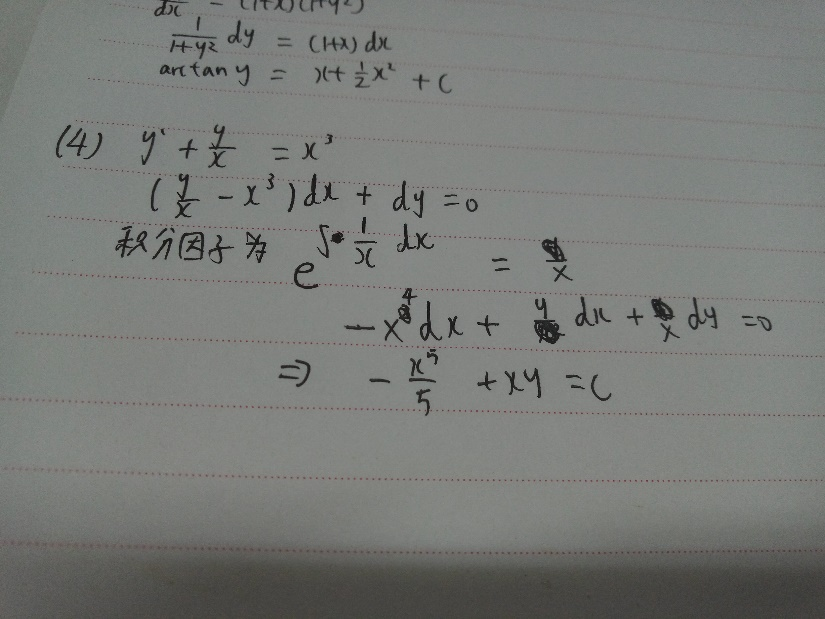 dy/dx = (1+x)(1+y²)
1/(1+y²) dy = (1+x) dx
arctan y = x + 1/2 x² + C
(4) y' + y/x = x³
(y/x - x³) dx + dy = 0
积分因子为 e^(∫ 1/x dx) = x
- x⁴ dx + y dx + x dy = 0
⇒ - x⁵/5 + xy = C